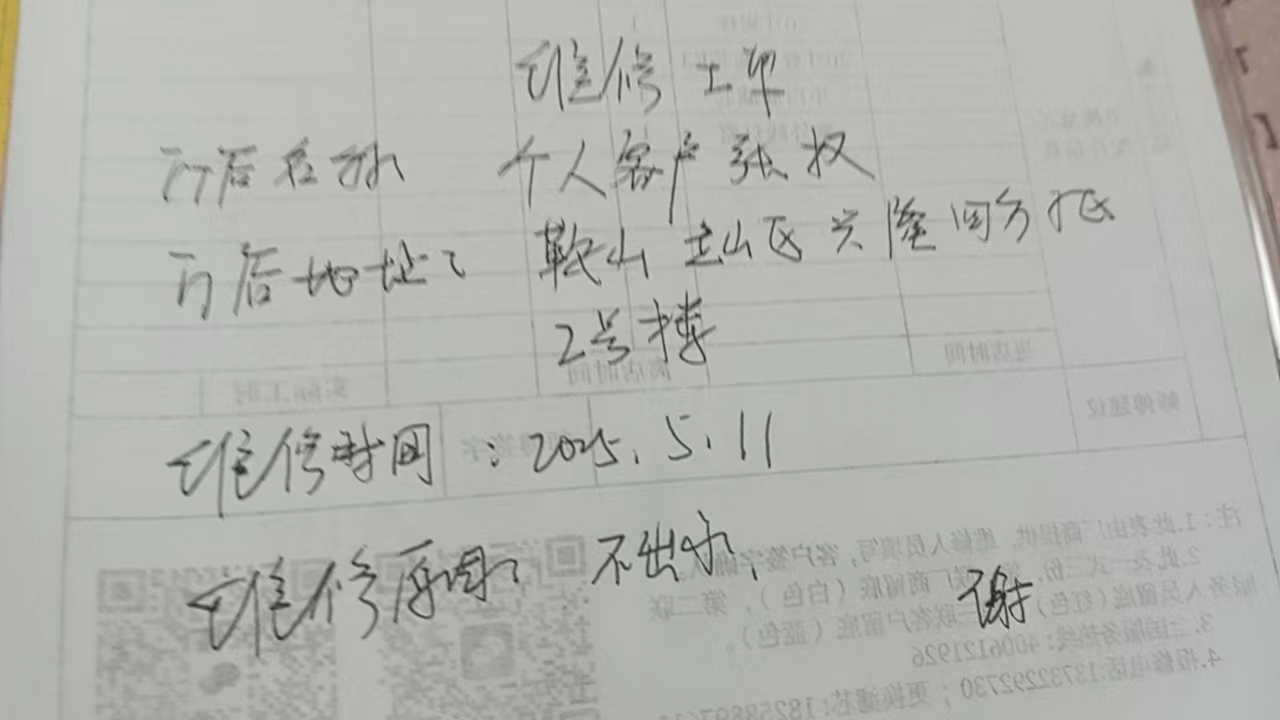 维修工单
门店名称 个人客户张权
门店地址: 鞍山立山区兴隆
2号楼
维修时间:2025.5.11
维修原因: 不出水,
谢
实际工时
离店时间
进店时间
师傅建议
师傅签字
注:1.此表由厂商提供,维修人员填写,客户签字确认
2.此表一式三份,第一联厂商留底(白色),第二联
服务人员留底(红色)三联客户留底(蓝色)。
3.全国服务热线:4006121926
4.报修电话:13732292730;更换滤芯:18258897